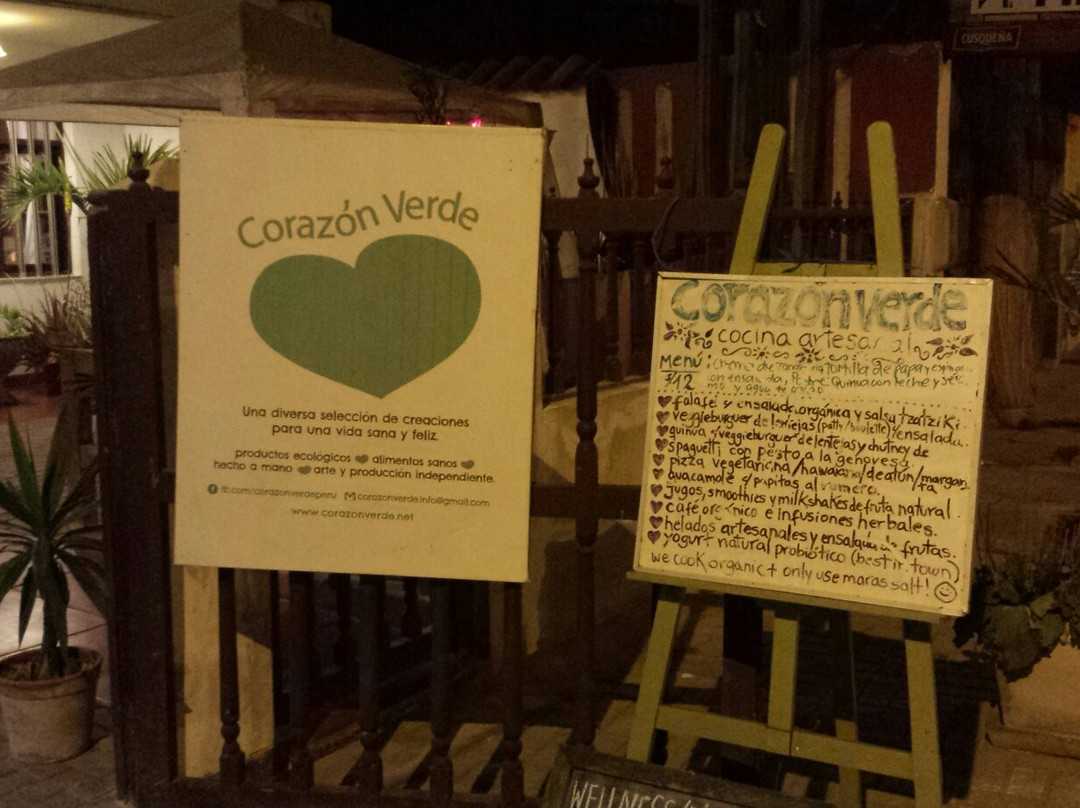 CUSQUEÑA
Corazón Verde
Una diversa selección de creaciones
para una vida sana y feliz.
productos ecológicos alimentos sanos
hecho a mano arte y producción independiente.
fb.com/corazonverdeperu corazonverde.info@gmail.com
www.corazonverde.net
corazónverde
cocina artesa al
Menú: crema de tortilla de papa y
s/12 quinua con leche y
y agua de
falafel y ensalada orgánica y salsa tzatziki.
veggieburguer de lentejas (patty/boulette)/ensalada.
quinua/veggieburguer de lentejas y chutney de
spaguetti con pesto a la genovesa.
pizza vegetariana/hawaiana/de atún/margarita
guacamole c/papitas al romero.
jugos, smoothies y milkshakes de fruta natural.
café orgánico e infusiones herbales.
helados artesanales y ensalada de frutas.
yogurt natural probiótico (best in town)
we cook organic + only use maras salt!
WELLNESS